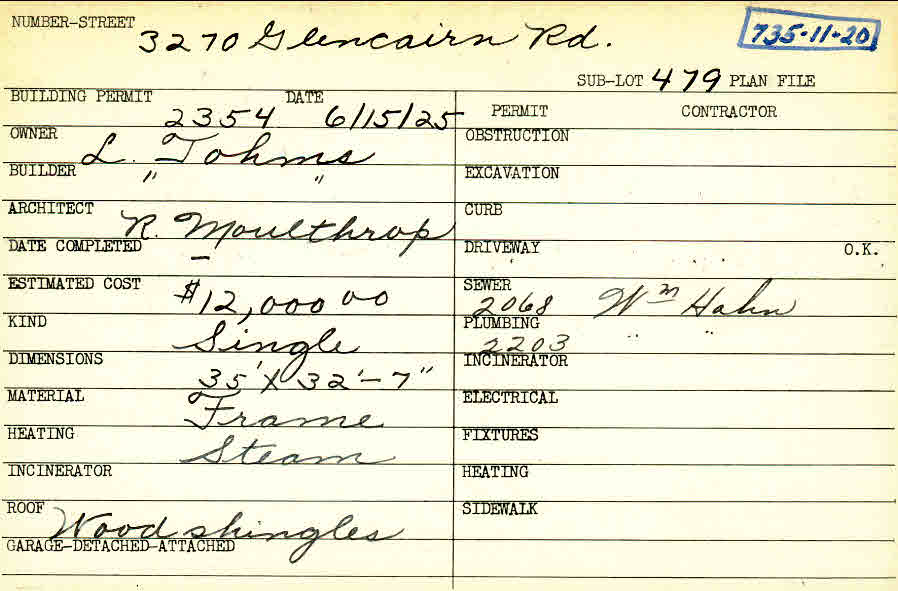 NUMBER-STREET
3270 Glencairn Rd.
735-11-20
SUB-LOT 479 PLAN FILE
BUILDING PERMIT DATE
2354 6/15/25
PERMIT CONTRACTOR
OWNER L. Johms
OBSTRUCTION
BUILDER " "
EXCAVATION
ARCHITECT R. Moulthrop
CURB
DATE COMPLETED –
DRIVEWAY O.K.
ESTIMATED COST $12,000 00
SEWER
2068 Wm Hahn
KIND Single
PLUMBING
2203 " "
DIMENSIONS 35' X 32'-7"
INCINERATOR
MATERIAL Frame
ELECTRICAL
HEATING Steam
FIXTURES
INCINERATOR
HEATING
ROOF Wood shingles
SIDEWALK
GARAGE-DETACHED-ATTACHED